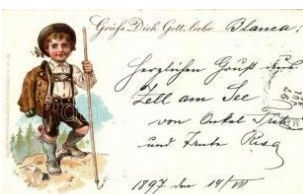 Grüß Dich Gott, liebe Blanca!
Herzlichen Gruß aus
Zell am See
von Onkel
und Tante Rosa
1897 den 14/VIII